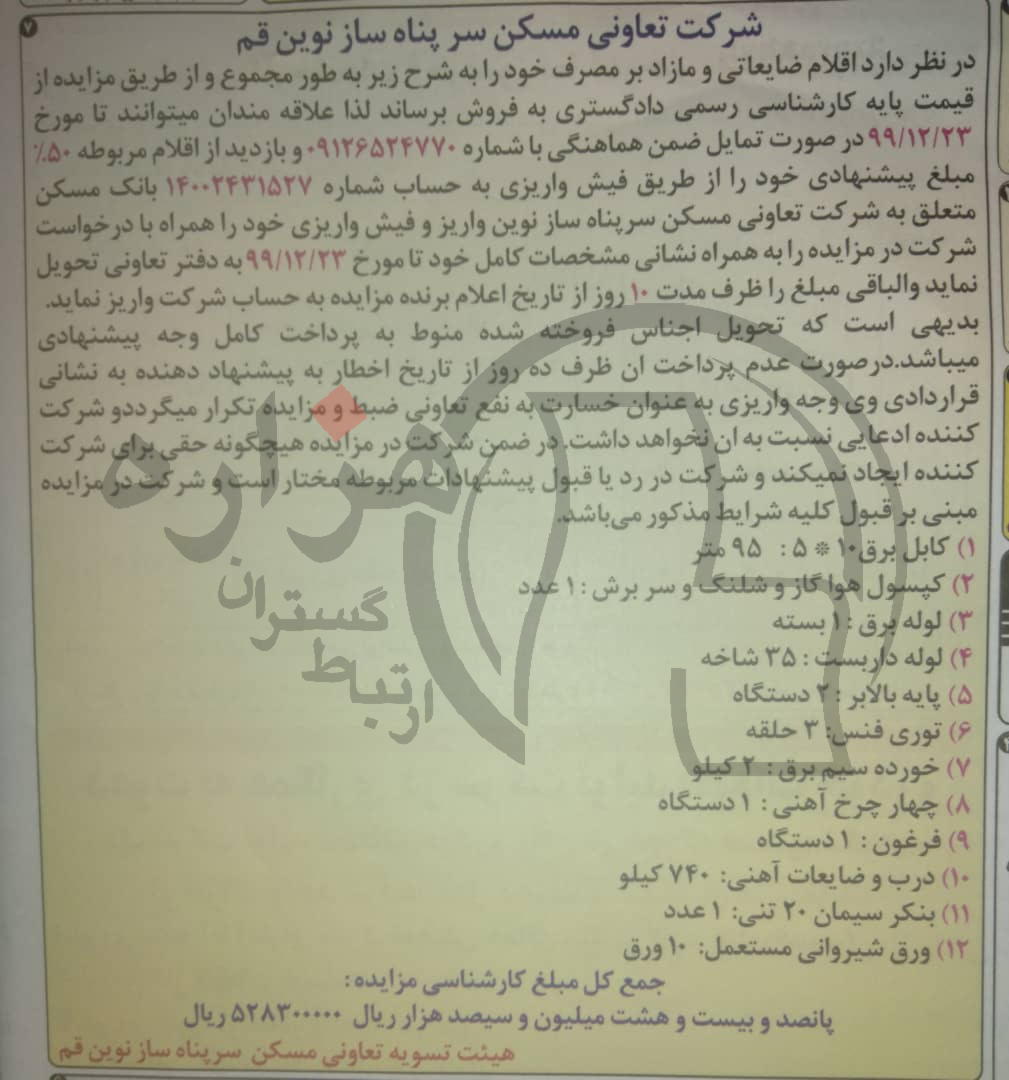 ۷
شرکت تعاونی مسکن سر پناه ساز نوین قم
در نظر دارد اقلام ضایعاتی و مازاد بر مصرف خود را به شرح زیر به طور مجموع و از طریق مزایده از
قیمت پایه کارشناسی رسمی دادگستری به فروش برساند لذا علاقه مندان میتوانند تا مورخ
۹۹/۱۲/۲۳ در صورت تمایل ضمن هماهنگی با شماره ۰۹۱۲۶۵۲۴۷۷۰ و بازدید از اقلام مربوطه ۵۰٪
مبلغ پیشنهادی خود را از طریق فیش واریزی به حساب شماره ۱۴۰۰۲۴۳۱۵۲۷ بانک مسکن
متعلق به شرکت تعاونی مسکن سرپناه ساز نوین واریز و فیش واریزی خود را همراه با درخواست
شرکت در مزایده را به همراه نشانی مشخصات کامل خود تا مورخ ۹۹/۱۲/۲۳ به دفتر تعاونی تحویل
نماید والباقی مبلغ را ظرف مدت ۱۰ روز از تاریخ اعلام برنده مزایده به حساب شرکت واریز نماید.
بدیهی است که تحویل اجناس فروخته شده منوط به پرداخت کامل وجه پیشنهادی
میباشد.درصورت عدم پرداخت ان ظرف ده روز از تاریخ اخطار به پیشنهاد دهنده به نشانی
قراردادی وی وجه واریزی به عنوان خسارت به نفع تعاونی ضبط و مزایده تکرار میگرددو شرکت
کننده ادعایی نسبت به ان نخواهد داشت. در ضمن شرکت در مزایده هیچگونه حقی برای شرکت
کننده ایجاد نمیکند و شرکت در رد یا قبول پیشنهادات مربوطه مختار است و شرکت در مزایده
مبنی بر قبول کلیه شرایط مذکور می‌باشد.
۱) کابل برق۱۰ * ۵ : ۹۵ متر
۲) کپسول هوا گاز و شلنگ و سر برش : ۱ عدد
۳) لوله برق : ۱ بسته
۴) لوله داربست : ۳۵ شاخه
۵) پایه بالابر : ۲ دستگاه
۶) توری فنس: ۳ حلقه
۷) خورده سیم برق : ۲ کیلو
۸) چهار چرخ آهنی : ۱ دستگاه
۹) فرغون : ۱ دستگاه
۱۰) درب و ضایعات آهنی: ۷۴۰ کیلو
۱۱) بنکر سیمان ۲۰ تنی: ۱ عدد
۱۲) ورق شیروانی مستعمل: ۱۰ ورق
جمع کل مبلغ کارشناسی مزایده :
پانصد و بیست و هشت میلیون و سیصد هزار ریال ۵۲۸۳۰۰۰۰۰ ریال
هیئت تسویه تعاونی مسکن سرپناه ساز نوین قم
هزاره
ارتباط گستران